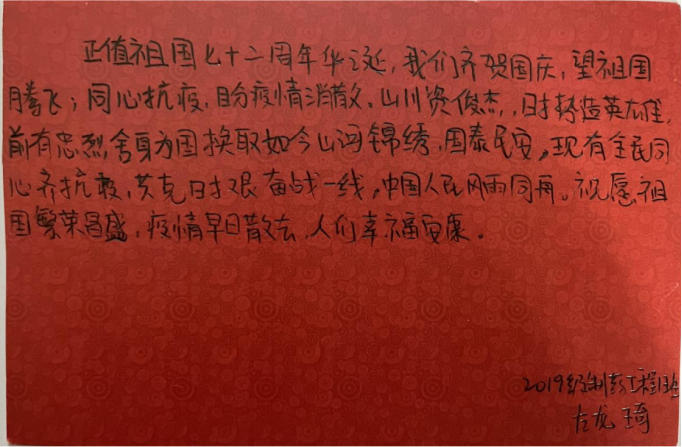 正值祖国七十二周年华诞，我们齐贺国庆，望祖国
腾飞；同心抗疫，盼疫情消散。山川资俊杰，时势造英雄，
前有忠烈舍身为国换取如今山河锦绣，国泰民安，现有全民同
心齐抗疫，共克时艰奋战一线，中国人民风雨同舟。祝愿祖
国繁荣昌盛，疫情早日散去，人们幸福安康。
2019级制药工程班
左龙琦